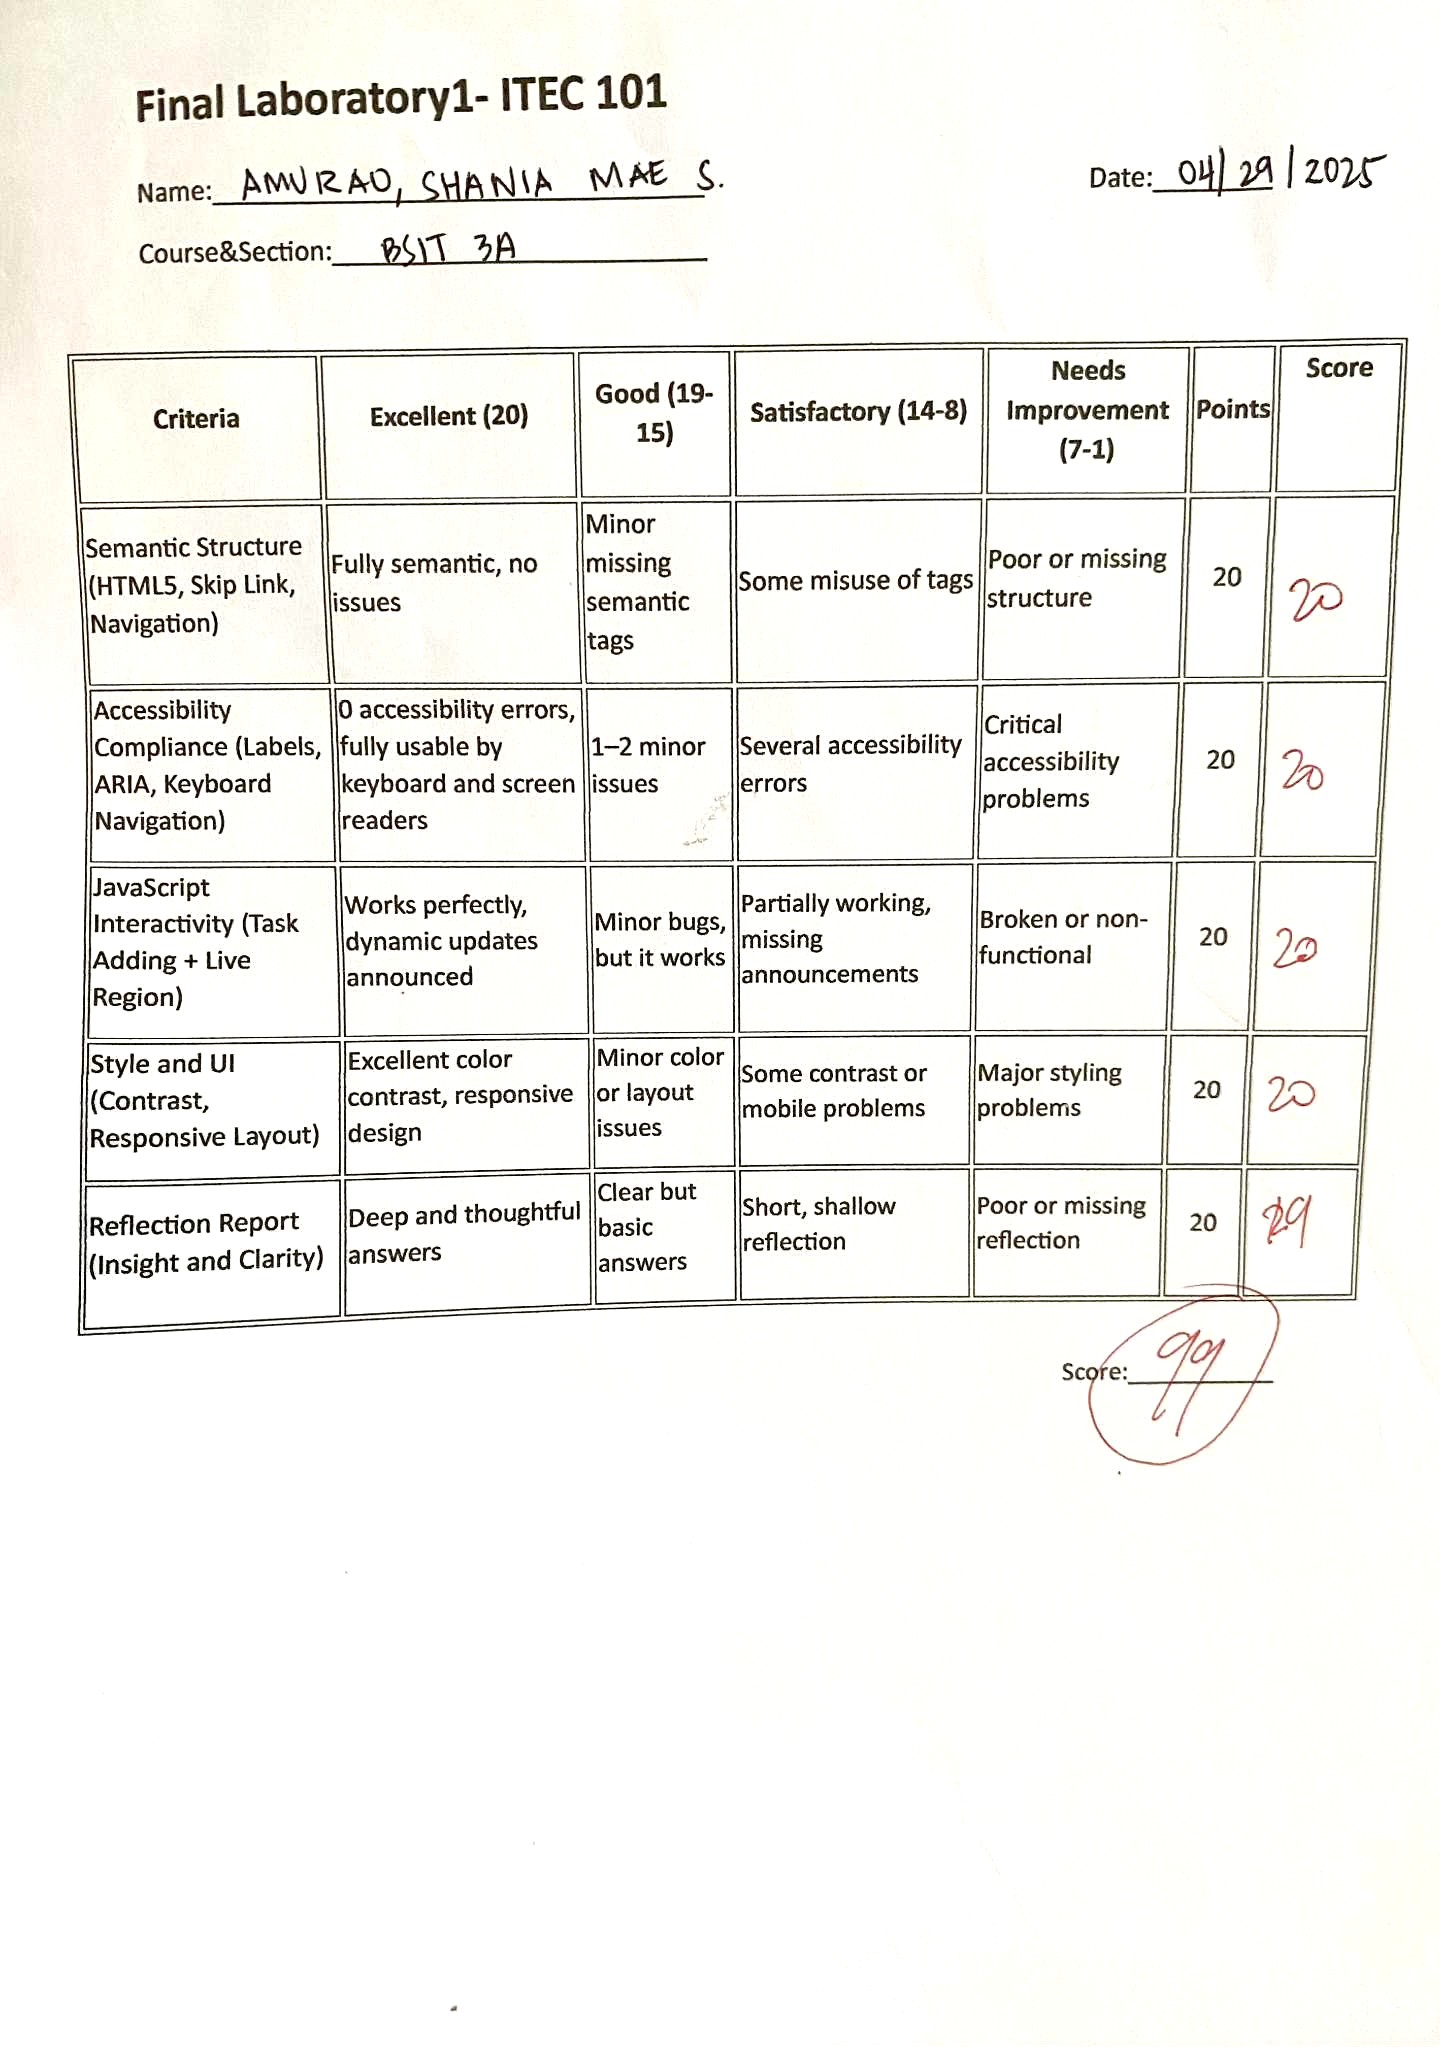 Final Laboratory1- ITEC 101
Name: AMURAO, SHANIA MAE S.
Date: 04/29/2025
Course&Section: BSIT 3A
Criteria
Excellent (20)
Good (19-
15)
Satisfactory (14-8)
Needs
Improvement
(7-1)
Points
Score
Semantic Structure
(HTML5, Skip Link,
Navigation)
Fully semantic, no
issues
Minor
missing
semantic
tags
Some misuse of tags
Poor or missing
structure
20
20
Accessibility
Compliance (Labels,
ARIA, Keyboard
Navigation)
0 accessibility errors,
fully usable by
keyboard and screen
readers
1–2 minor
issues
Several accessibility
errors
Critical
accessibility
problems
20
20
JavaScript
Interactivity (Task
Adding + Live
Region)
Works perfectly,
dynamic updates
announced
Minor bugs,
but it works
Partially working,
missing
announcements
Broken or non-
functional
20
20
Style and UI
(Contrast,
Responsive Layout)
Excellent color
contrast, responsive
design
Minor color
or layout
issues
Some contrast or
mobile problems
Major styling
problems
20
20
Reflection Report
(Insight and Clarity)
Deep and thoughtful
answers
Clear but
basic
answers
Short, shallow
reflection
Poor or missing
reflection
20
19
Score: 99